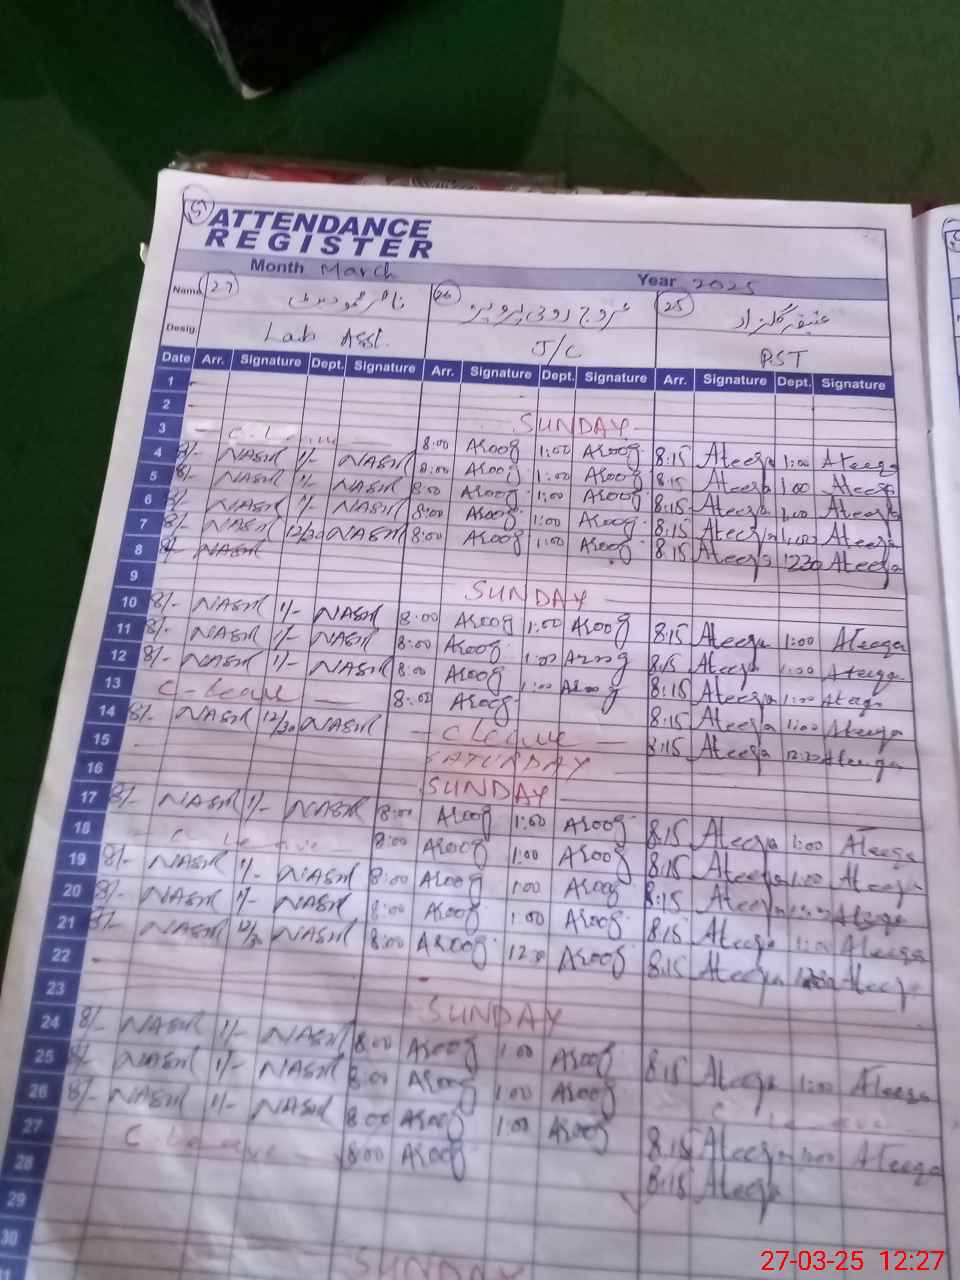 ATTENDANCE
REGISTER
Month March Year 2025
Name (27) (26) (25) عتیقہ گلزار
Desig. Lab Asst. J/C PST
Date Arr. Signature Dept. Signature Arr. Signature Dept. Signature Arr. Signature Dept. Signature
1
2 SUNDAY
3 C. Leave 8:00 Aroog 1:00 Aroog 8:15 Ateeqa 1:00 Ateeqa
4 8/- NASIR 1/- NASIR 8:00 Aroog 1:00 Aroog 8:15 Ateeqa 1:00 Ateeqa
5 8/- NASIR 1/- NASIR 8:00 Aroog 1:00 Aroog 8:15 Ateeqa 1:00 Ateeqa
6 8/- NASIR 1/- NASIR 8:00 Aroog 1:00 Aroog 8:15 Ateeqa 1:00 Ateeqa
7 8/- NASIR 12/30 NASIR 8:00 Aroog 1:00 Aroog 8:15 Ateeqa 1230 Ateeqa
8 8/- NASIR
9 SUNDAY
10 8/- NASIR 1/- NASIR 8:00 Aroog 1:00 Aroog 8:15 Ateeqa 1:00 Ateeqa
11 8/- NASIR 1/- NASIR 8:00 Aroog 1:00 Aroog 8:15 Ateeqa 1:00 Ateeqa
12 8/- NASIR 1/- NASIR 8:00 Aroog 1:00 Aroog 8:15 Ateeqa 1:00 Ateeqa
13 C-Leave 8:00 Aroog 8:15 Ateeqa 1:00 Ateeqa
14 8/- NASIR 12/30 NASIR C Leave 8:15 Ateeqa 12:30 Ateeqa
15 SATURDAY
16 SUNDAY
17 8/- NASIR 1/- NASIR 8:00 Aroog 1:00 Aroog 8:15 Ateeqa 1:00 Ateeqa
18 C. Leave 8:00 Aroog 1:00 Aroog 8:15 Ateeqa 1:00 Ateeqa
19 8/- NASIR 1/- NASIR 8:00 Aroog 1:00 Aroog 8:15 Ateeqa Ateeqa
20 8/- NASIR 1/- NASIR 8:00 Aroog 1:00 Aroog 8:15 Ateeqa 1:00 Ateeqa
21 8/- NASIR 12/30 NASIR 8:00 Aroog 1230 Aroog 8:15 Ateeqa 1230 Ateeqa
22
23 SUNDAY
24 8/- NASIR 1/- NASIR 8:00 Aroog 1:00 Aroog 8:15 Ateeqa 1:00 Ateeqa
25 8/- NASIR 1/- NASIR 8:00 Aroog 1:00 Aroog C Leave
26 8/- NASIR 1/- NASIR 8:00 Aroog 1:00 Aroog 8:15 Ateeqa 1:00 Ateeqa
27 C. Leave 8:00 Aroog 8:15 Ateeqa
28
29
30 SUNDAY
27-03-25 12:27